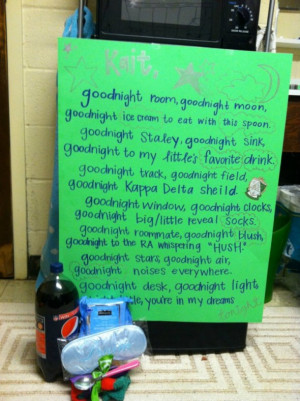 Kait,
goodnight room, goodnight moon,
goodnight ice cream to eat with this spoon.
goodnight Staley, goodnight sink,
goodnight to my little's favorite drink.
goodnight track, goodnight field,
goodnight Kappa Delta sheild.
goodnight window, goodnight clocks,
goodnight big/little reveal socks.
goodnight roommate, goodnight blush,
goodnight to the RA whispering "HUSH."
goodnight stars, goodnight air,
goodnight noises everywhere.
goodnight desk, goodnight light,
you're in my dreams
tonight.
pepsi